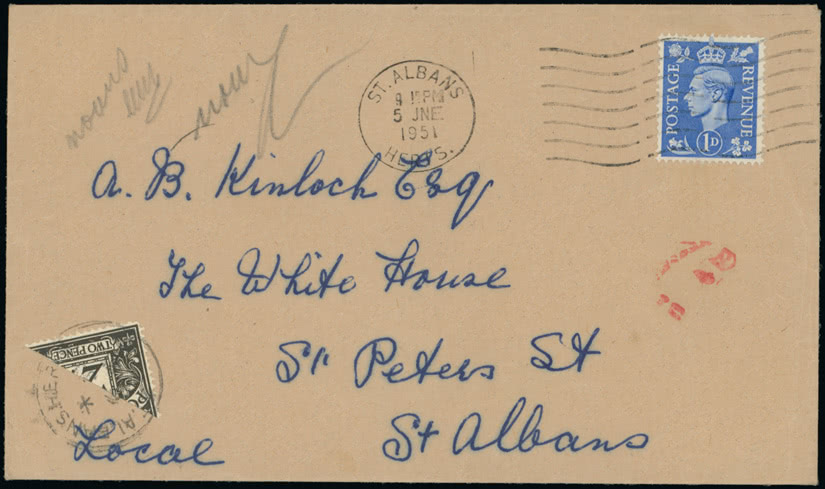 ST. ALBANS
5 JNE
1951
HERTS.
POSTAGE REVENUE
1D
A. B. Kinloch Esq
The White House
St Peters St
St Albans
Local
TWO PENCE